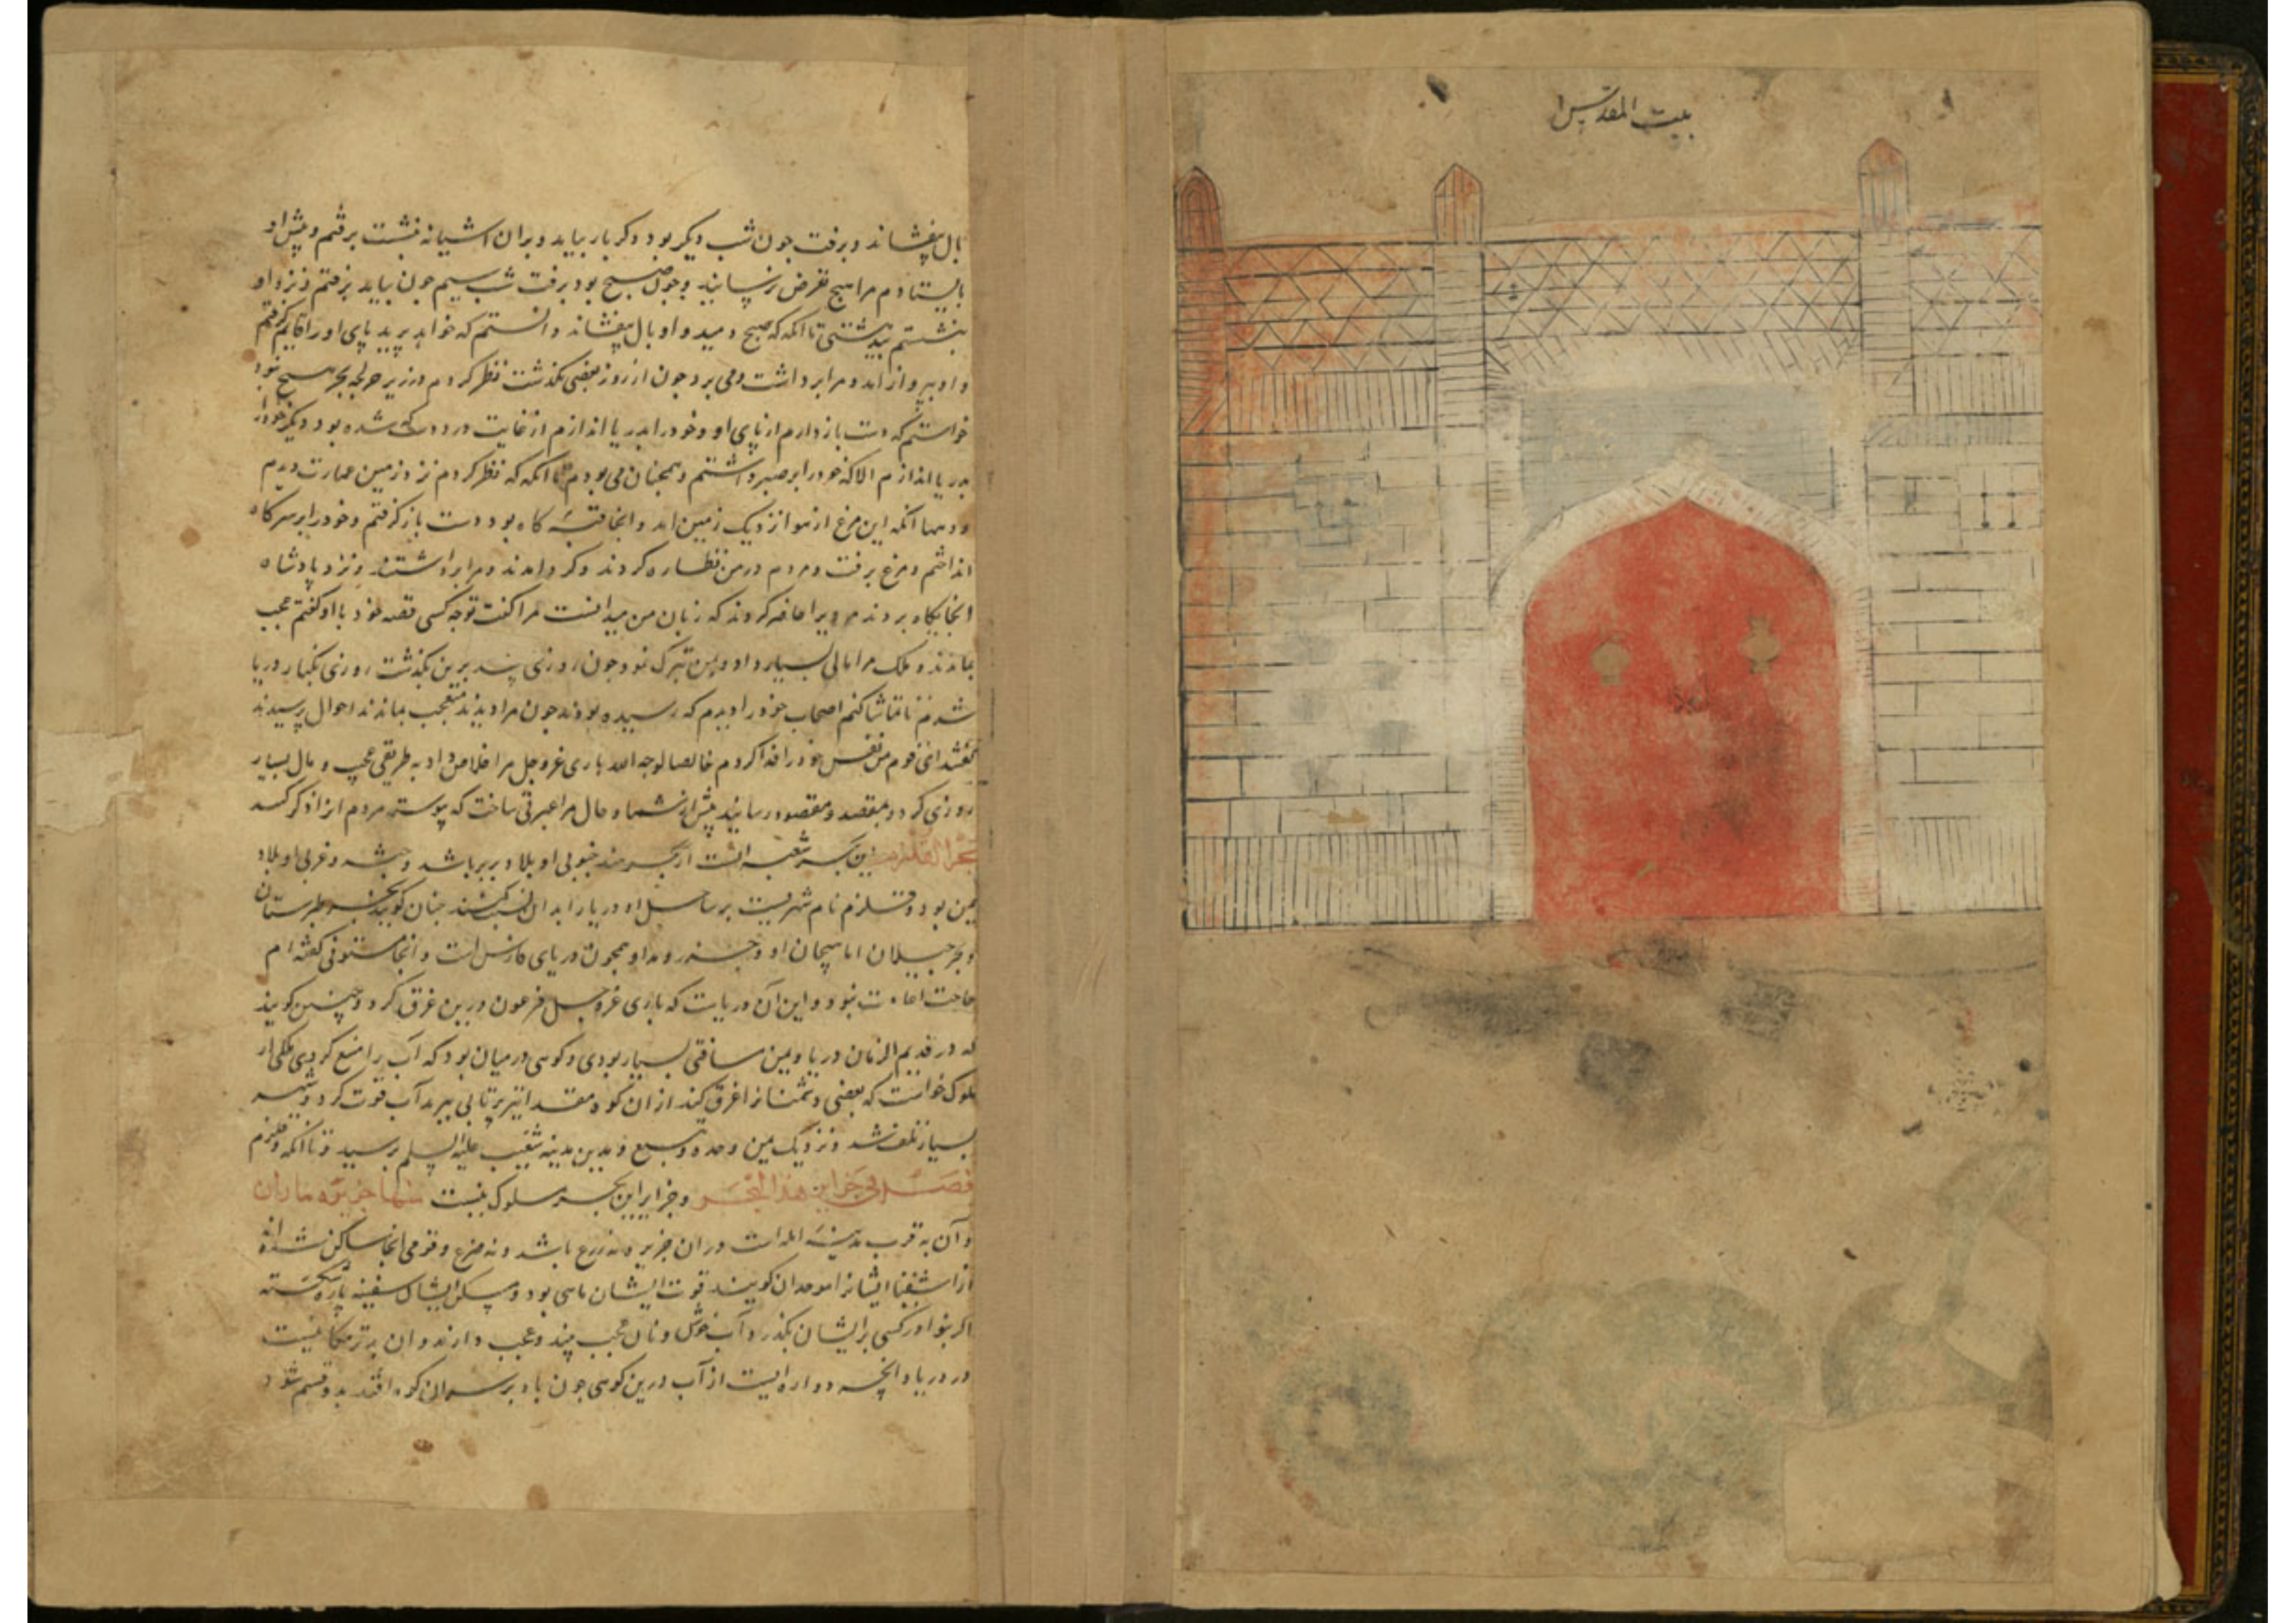 بيت المقدس
بال بیفشاند و برفت جون شب دیکر بود دکر بار بیاید و بران اشیانه نشست برفتم و پیش او
بایستادم مرا هیچ تعرض نرسانید و جون صبح بود برفت شب سیم جون بیاید برفتم و نزد او
بنشستم تا انکه که صبح دمید و او بال بیفشاند دانستم که خواهد برید پای او را کرفتم
و او ببرواز امد و مرا برداشت و می برد جون از روز بعضی بکذشت نظر کردم در زیر جز لجه بحر هیچ نبود
خواستم که دست باز دارم از پای او و خود را بدریا اندازم از غایت درد که شده بود دیکر خود را
بدریا اندازم الا که خود را بر صبر داشتم و همجنان می بودم تا انکه که نظر کردم نزد زمین عمارت دیدم
و دیهها انکه این مرغ از هوا نزدیک زمین امد و انجا قبه کاه بود دست باز کرفتم و خود را بر سر کاه
انداختم و مرغ برفت و مردم در من نظاره کردند و کرد امدند و مرا برداشتند و نزد پادشاه
انجایکاه بردند و یرا حاضر کردند که زبان من میدانست مرا کفت تو جه کسی قصه خود با او کفتم عجب
بماندند و ملک مرا مالی بسیار داد و بمن تبرک نمود جون روزی جند برین بکذشت روزی بکنار دریا
شدم تا تماشا کنم اصحاب خود را دیدم که رسیده بودند جون مرا دیدند متعجب بماندند احوال پرسیدند
کفتم ای قوم من نفس خود را فدا کردم خالصا لوجه الله باری عزوجل مرا خلاص داد به طریقی عجب و مال بسیار
روزی کرد و بمقصد و مقصود رسانید پیش از شما و حال مرا عبرتی ساخت که پیوسته مردم از ان ذکر کنند
بحر القلزم این بحر شعبه ایست از بحر هند جنوبی او بلاد بربر باشد و حبشه و غربی او بلاد
یمن بود و قلزم نام شهریست بر ساحل او دریا را بدان نسبت کنند جنان کویند بحر طبرستان
و بحر جیلان اما هیجان او و جزر و مد او همجون دریای فارس است و انجا مستوفی کفته ام
حاجت اعادت نبود و این آن دریاست که باری عزوجل فرعون درین غرق کرد و جنین کویند
که در قدیم الزمان دریا و یمن مسافتی بسیار بودی و کوهی در میان بود که آب را منع کردی ملکی از
ملوک خواست که بعضی دشمنانرا غرق کند از ان کوه مقدار تیر پرتابی ببرید آب قوت کرد و شهر
بسیار تلف شد و نزدیک یمن و جده و ینبع و مدین مدینه شعیب علیه السلم برسید و تا انکه و قلزم
فصل فی جزایر هذا البحر و جزایر این بحر مسلوک نیست منها جزیره تاران
و آن به قرب مدینه ایله است و در ان جزیره نه زرع باشد و نه ضرع و قومی انجا ساکن شده اند
از اشقیا ایشانرا کویند قوت ایشان ماهی بود و مسکن ایشان سفینه پاره شکسته
اکر کسی بر ایشان بکذرد آب خوش و نان عجب دارند و ان بدتر مکانیست
در دریا و انجه دواره ایست از آب در بن کوهی جون باد بر سر ان کوه افتد بدو قسم شود